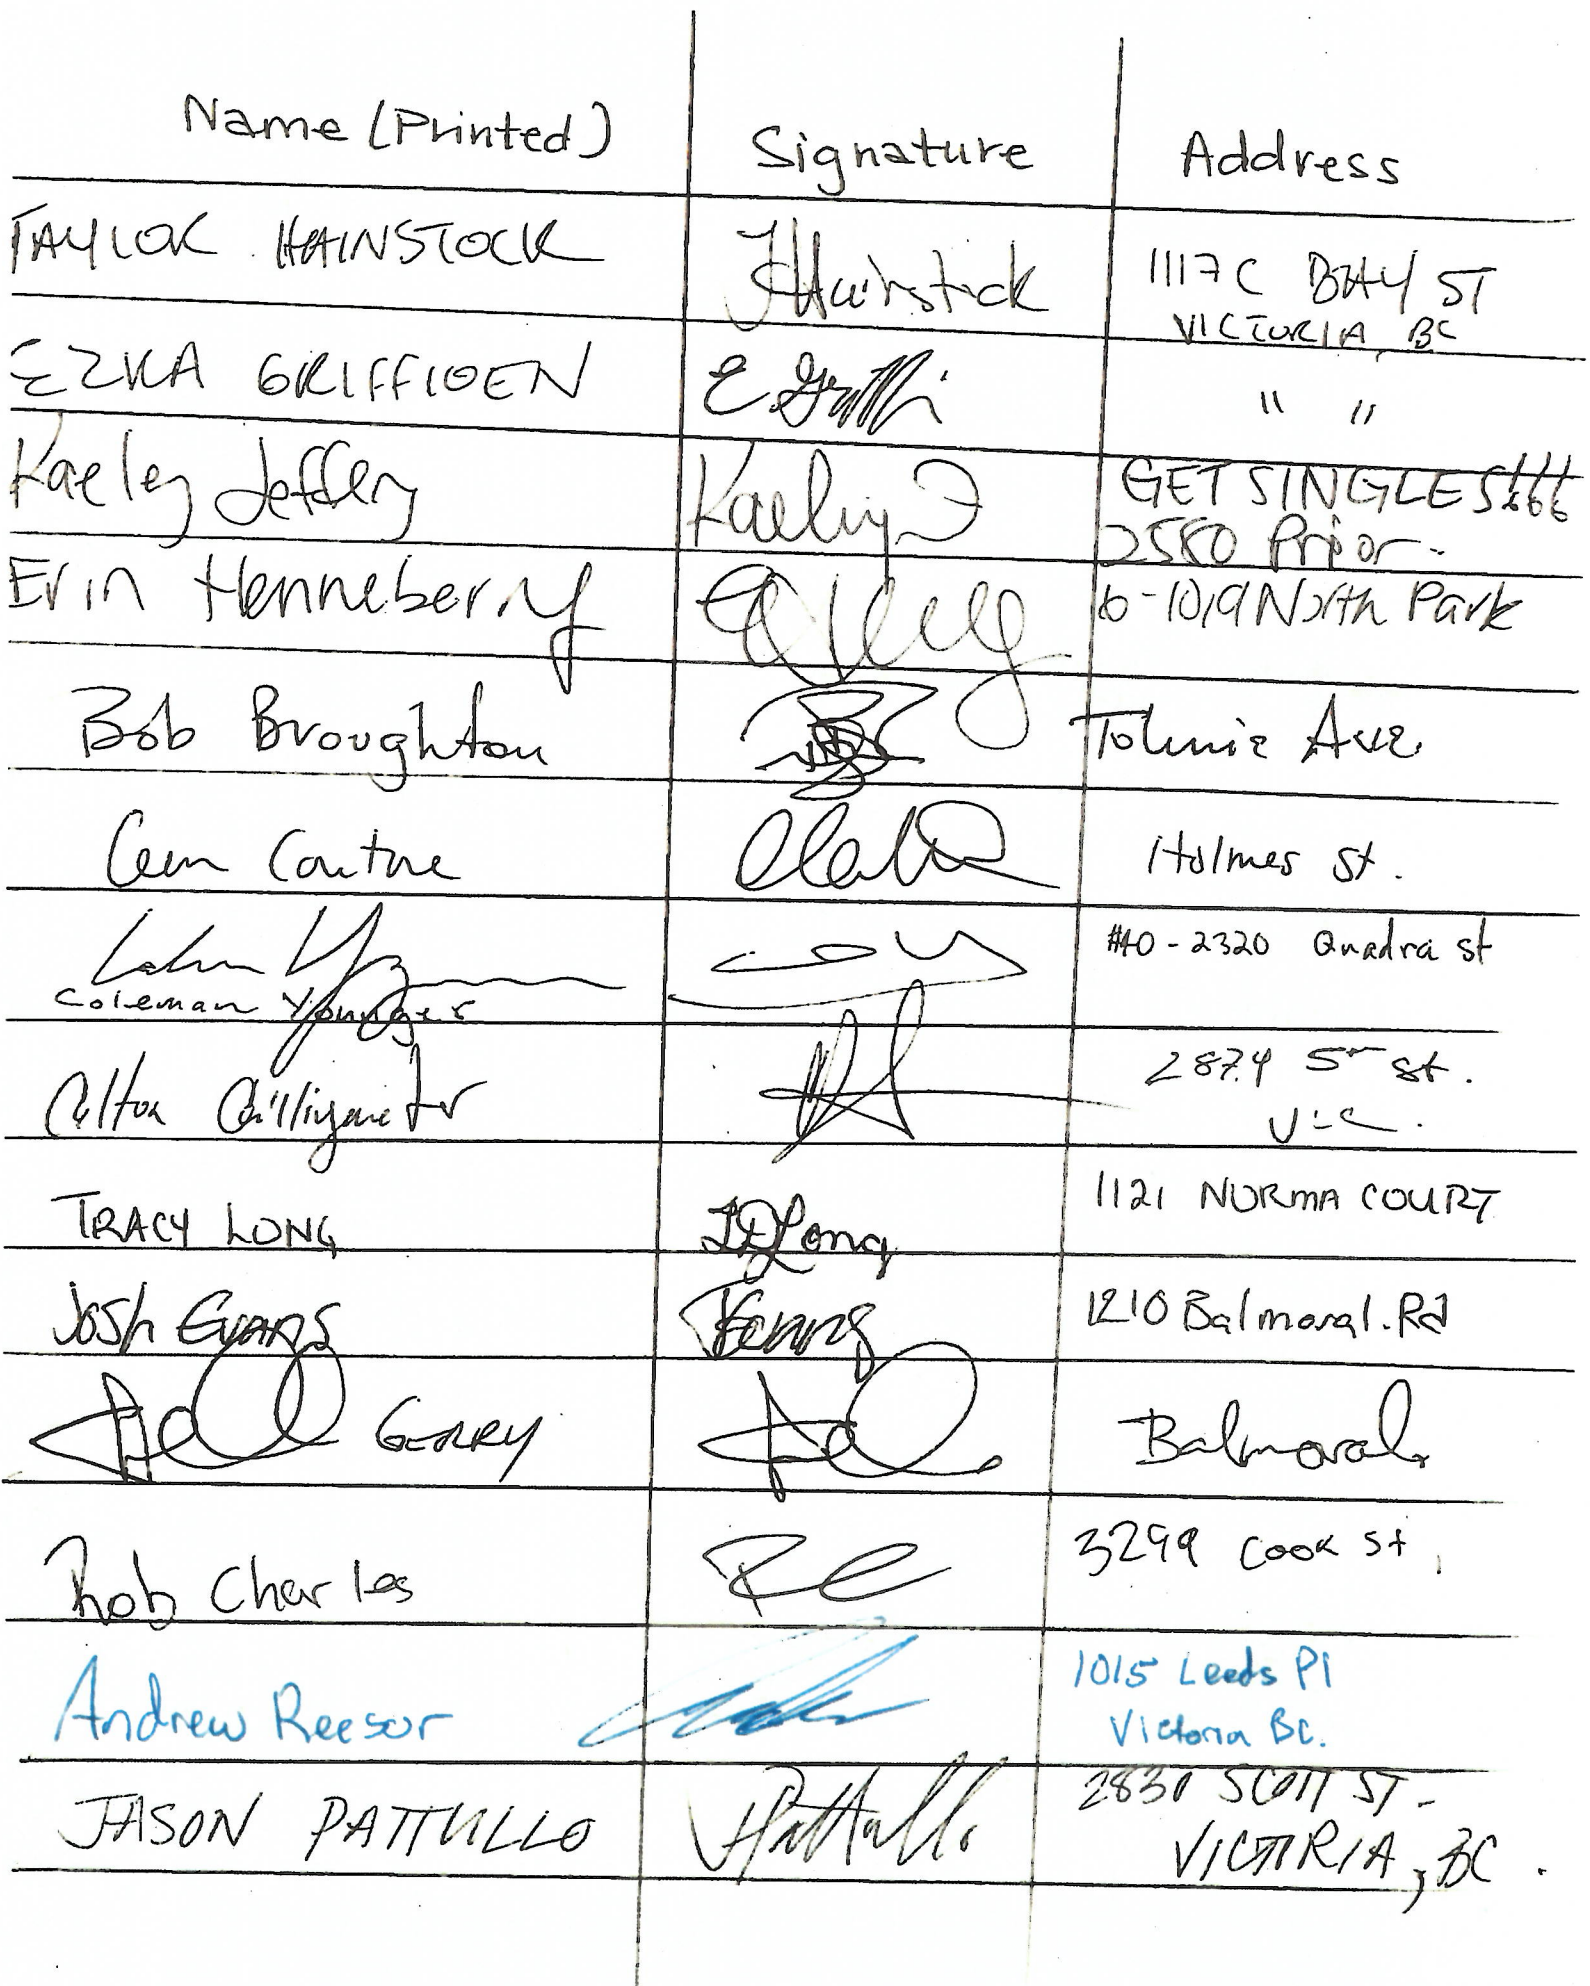 Name (Printed) Signature Address
TAYLOR HAINSTOCK THainstock 1117 C BAY ST
VICTORIA, BC
EZRA GRIFFIOEN E. Griffi " "
Kaeley Jeffery Kaeley J GET SINGLES!!!
2580 Prior.
Erin Henneberry 6-1019 North Park
Bob Broughton Tolmie Ave.
Cam Couture Holmes St.
Coleman Younger #40-2320 Quadra st
Colton 2874 5th St.
Vic.
TRACY LONG TDLong 1121 NORMA COURT
Josh Evans JEvans 1210 Balmoral.Rd
GERRY Balmoral
Rob Charles RC 3299 Cook St.
Andrew Reesor 1015 Leeds Pl
Victoria BC.
JASON PATTULLO JPattullo 2830 SCOTT ST-
VICTORIA, BC.